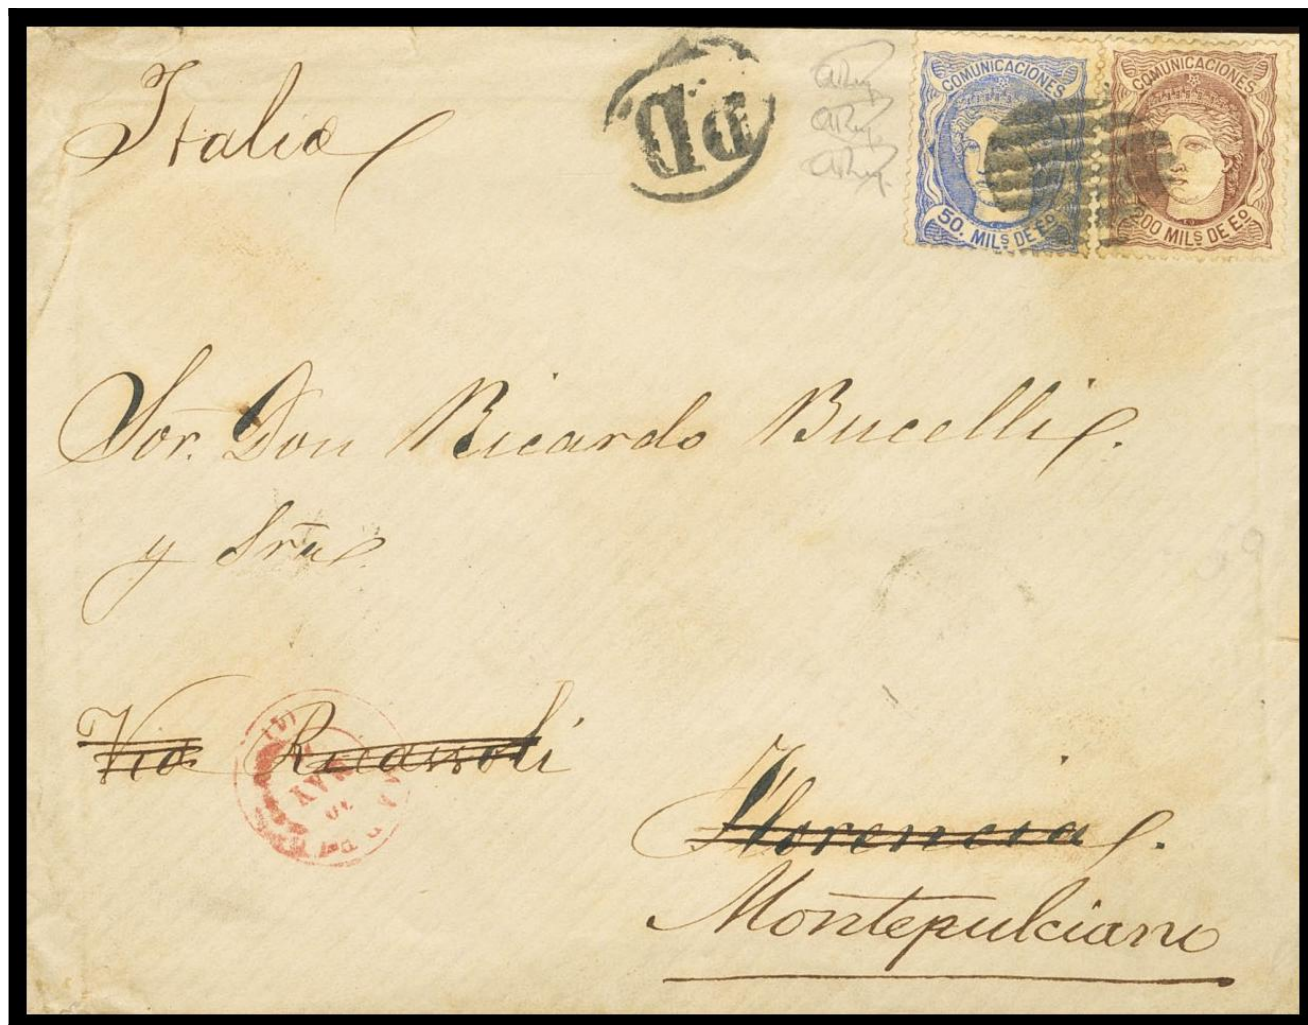 Italia
PD
COMUNICACIONES
50. MILS DE Eº
COMUNICACIONES
200 MILS DE Eº
Sor. Don Ricardo Bucelli.
y Sra.
Via Ricasoli
Florencia.
Montepulciano
MAY
70